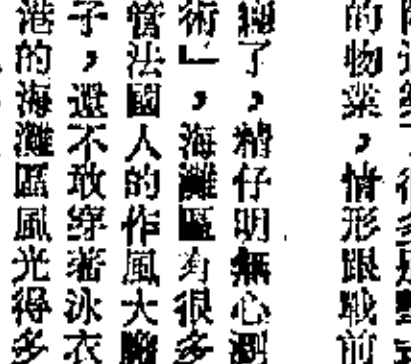 的物業，情形跟戰前
了，精仔明無心
術」，海灘區有很多
管法國人的作風大膽
子，還不敢穿著泳衣
港的海灘區風光得多